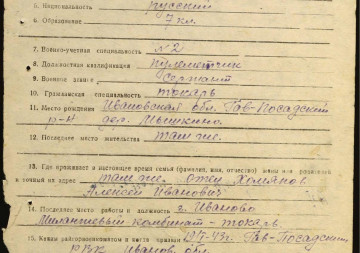 5. Национальность русский
6. Образование 7 кл.
7. Военно-учетная специальность №2
8. Должностная квалификация пулеметчик
9. Военное звание Сержант
10. Гражданская специальность токарь
11. Место рождения Ивановская обл. Гав-Посадский
р-н дер. Мышкино
12. Последнее место жительства там же.
13. Где проживает в настоящее время семья (фамилия, имя, отчество)
и точный их адрес там же. отец Хомяков
Алексей Иванович
14. Последнее место работы и должность г. Иваново
Меланжевый комбинат - токарь.
15. Каким райгорвоенкоматом и место призван 19 43г. Гав-Посадский
РВК Иванов. обл.